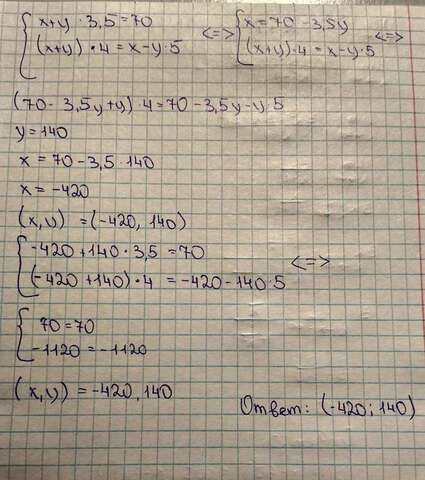 { x+y · 3,5 = 70 <=> { x = 70 - 3,5y
{ (x+y) · 4 = x-y · 5 { (x+y) · 4 = x-y · 5 <=>
(70 - 3,5y+y) · 4 = 70 - 3,5y - y · 5
y = 140
x = 70 - 3,5 · 140
x = -420
(x, y) = (-420, 140)
{ -420 + 140 · 3,5 = 70
{ (-420 + 140) · 4 = -420 - 140 · 5 <=>
{ 70 = 70
{ -1120 = -1120
(x, y) = -420, 140
Ответ: (-420; 140)